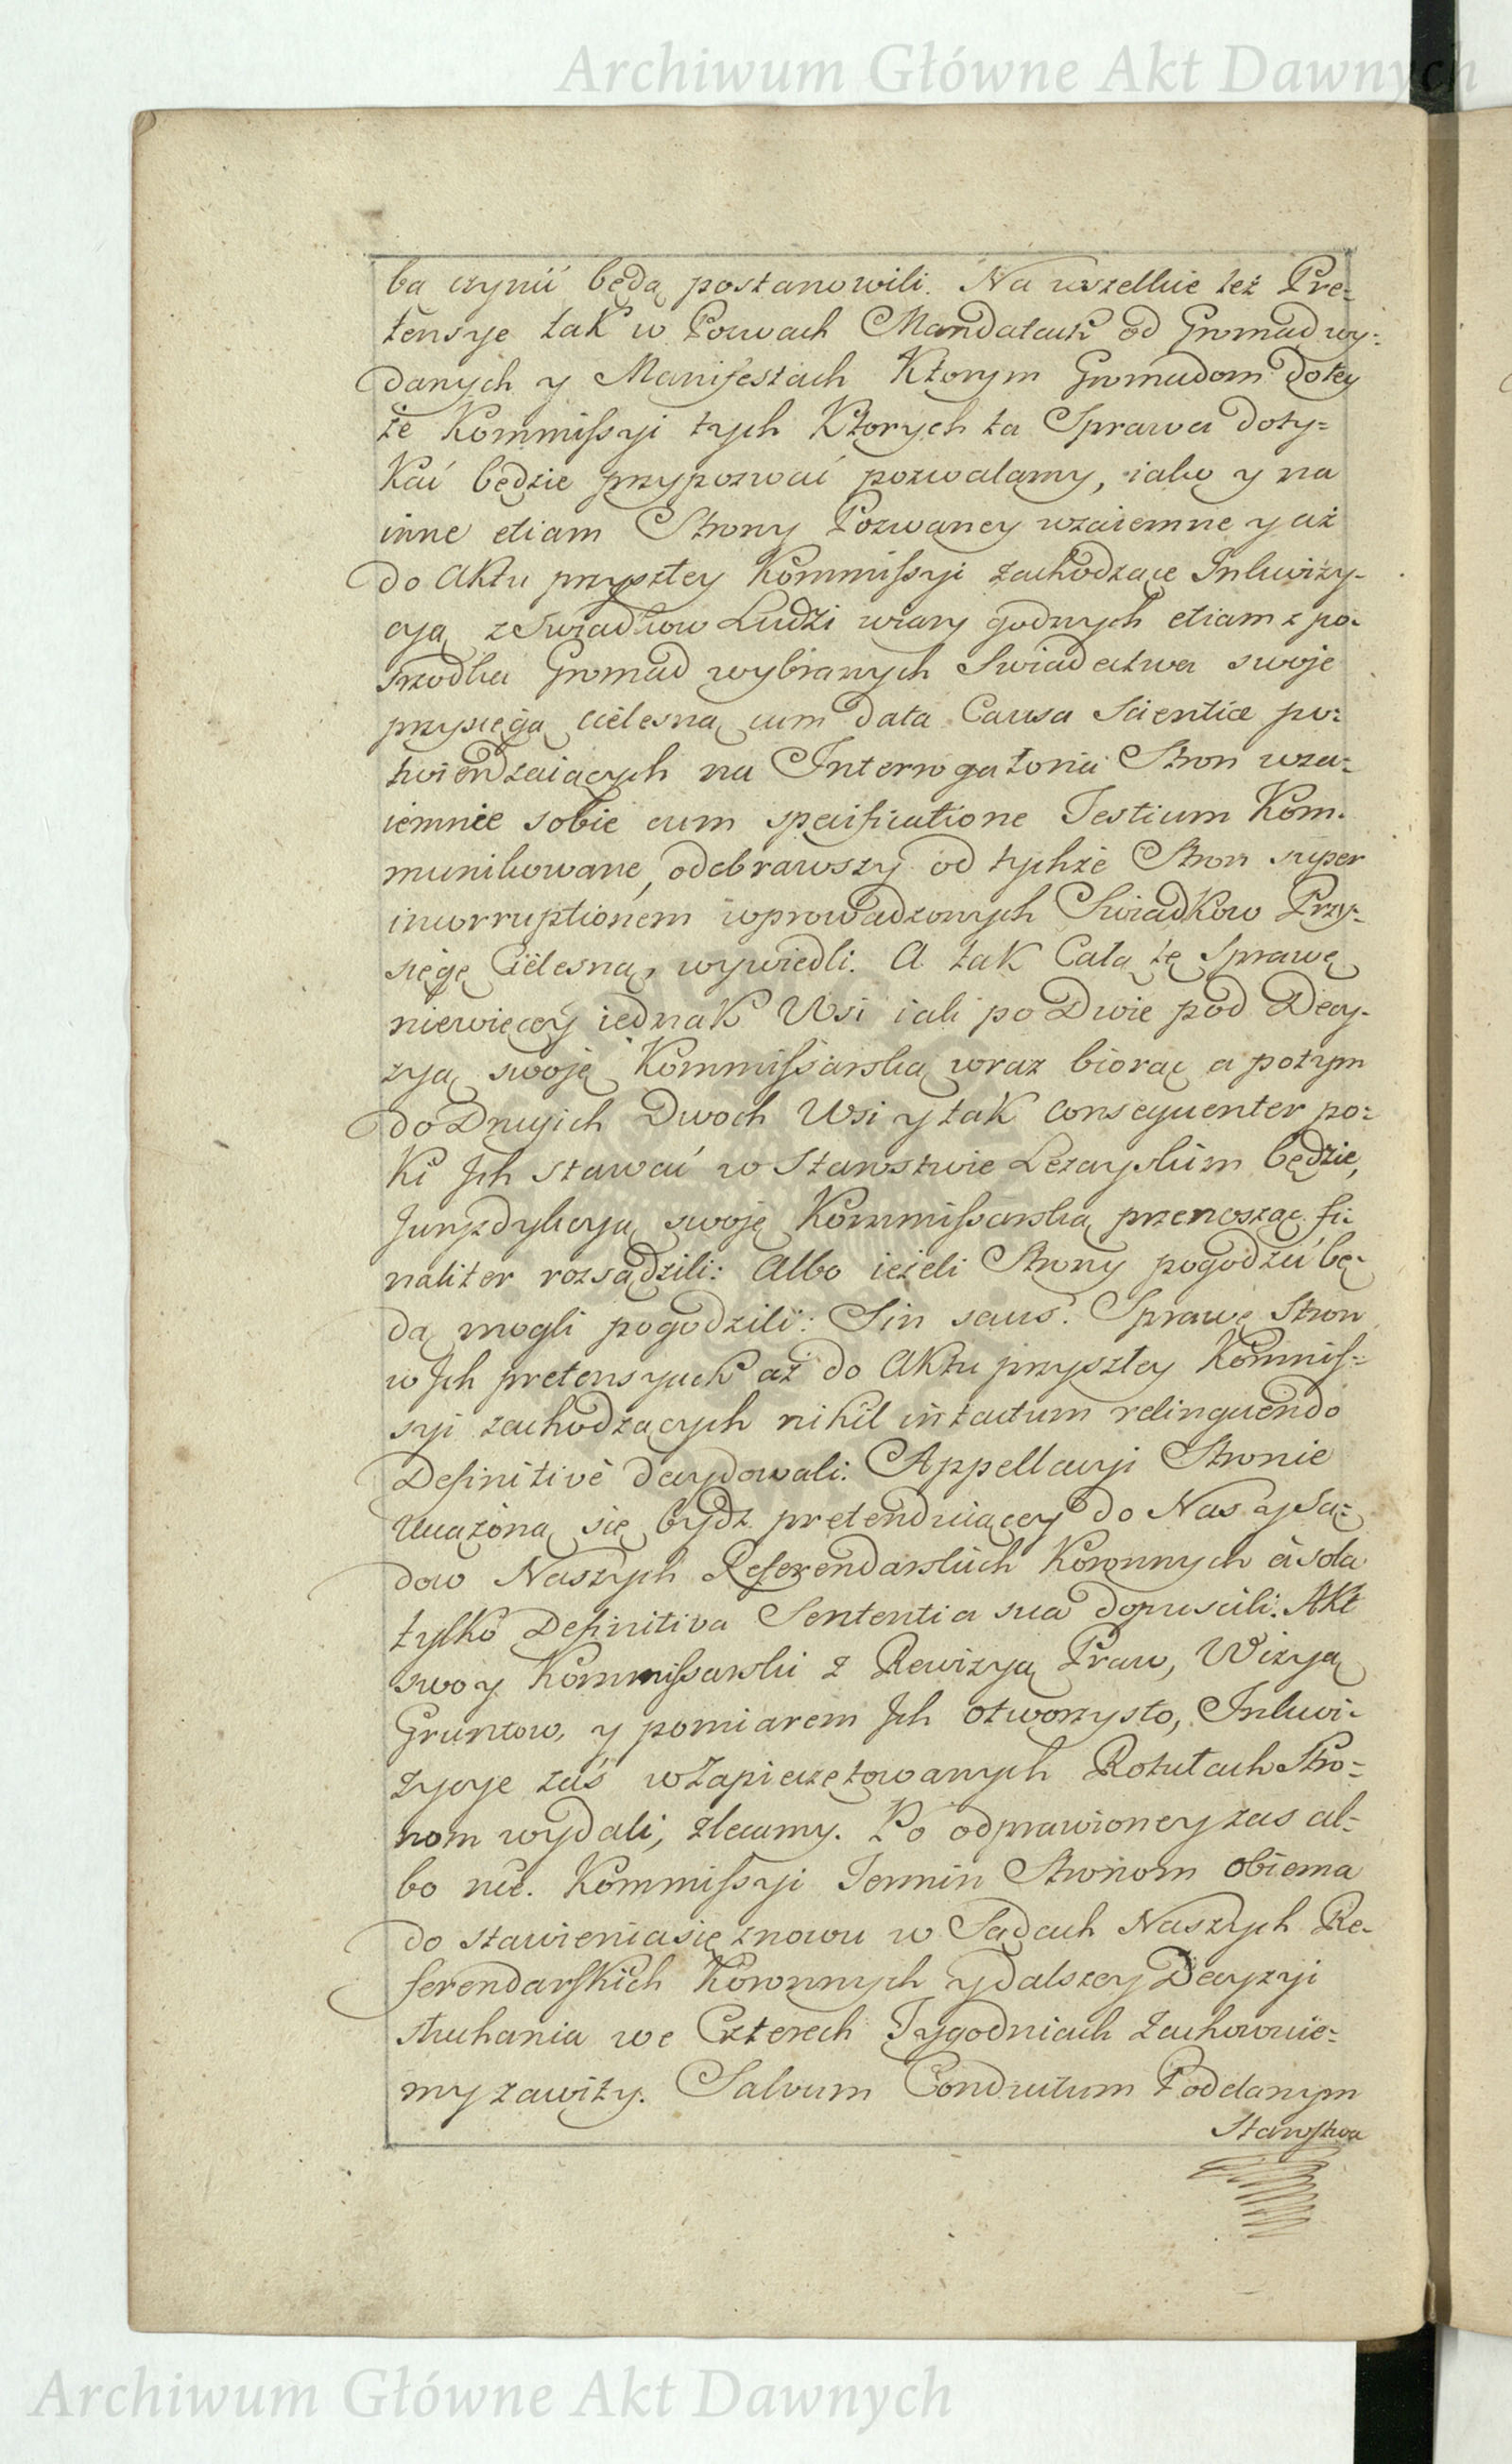 Archiwum Główne Akt Dawnych
ba czynić będą postanowili. Na wszelkie też Pre-
tensye tak w Pozwach Mandatach od Gromad wy-
danych y Manifestach Ktorym Gromadom do tey
że Kommissyi tych Ktorych ta Sprawa doty=
Kać będzie przypozwać pozwalamy, iako y na
inne etiam Strony Pozwaney wzaiemne y aż
do Aktu przyszłey Kommissyi zachodzące Inkwizy-
cyą z Swiadkow Ludzi wiary godnych etiam z po-
srzodka Gromad wybranych Swiadectwa swoje
przysięgą cielesną cum data Causa Scientiæ po-
twierdzaiących na Interrogatoria Stron wza-
iemnie sobie cum specificatione Testium Kom-
munikowane, odebrawszy od tychże Stron super
incorruptionem wprowadzonych Swiadkow Przy-
sięgę Cielesną, wywiedli. A tak Całą tę Sprawę
niewięcey iednak Wsi iak po Dwie pod Decy-
zyą swoję Kommissarską wraz biorąc a potym
do Drugich Dwoch Wsi y tak consequenter po-
Ki Jch stawać w Starostwie Leżayskim będzie,
Juryzdykcyą swoję Kommissarską przenosząc fi-
naliter rozsądzili: Albo ieżeli Strony pogodzić bę-
dą mogli pogodzili: Sin secus. Sprawę Stron
w Jch pretensyach aż do Aktu przyszłey Kommis=
syi zachodzących nihil intactum relinquendo
Definitivè decydowali: Appellacyi Stronie
Uciążoną się bydz pretenduiącey do Nas y Są-
dow Naszych Referendarskich Koronnych à sola
tylko Definitiva Sententia sua dopuscili: Akt
swoy Kommissarski z Rewizyą Praw, Wizyą
Gruntow, y pomiarem Jch otworzysto, Inkwi-
zycye zaś w Zapieczętowanych Rotułach Stro=
nom wydali, zlecamy. Po odprawioney zas al=
bo nie. Kommissyi Termin Stronom obiema
do stawienia się znowu w Sądach Naszych Re-
ferendarskich Koronnych y dalszey Decyzyi
słuchania we Czterech Tygodniach Zachowuie=
my zawity. Salvum Conductum Poddanym
Starostwa
Archiwum Główne Akt Dawnych